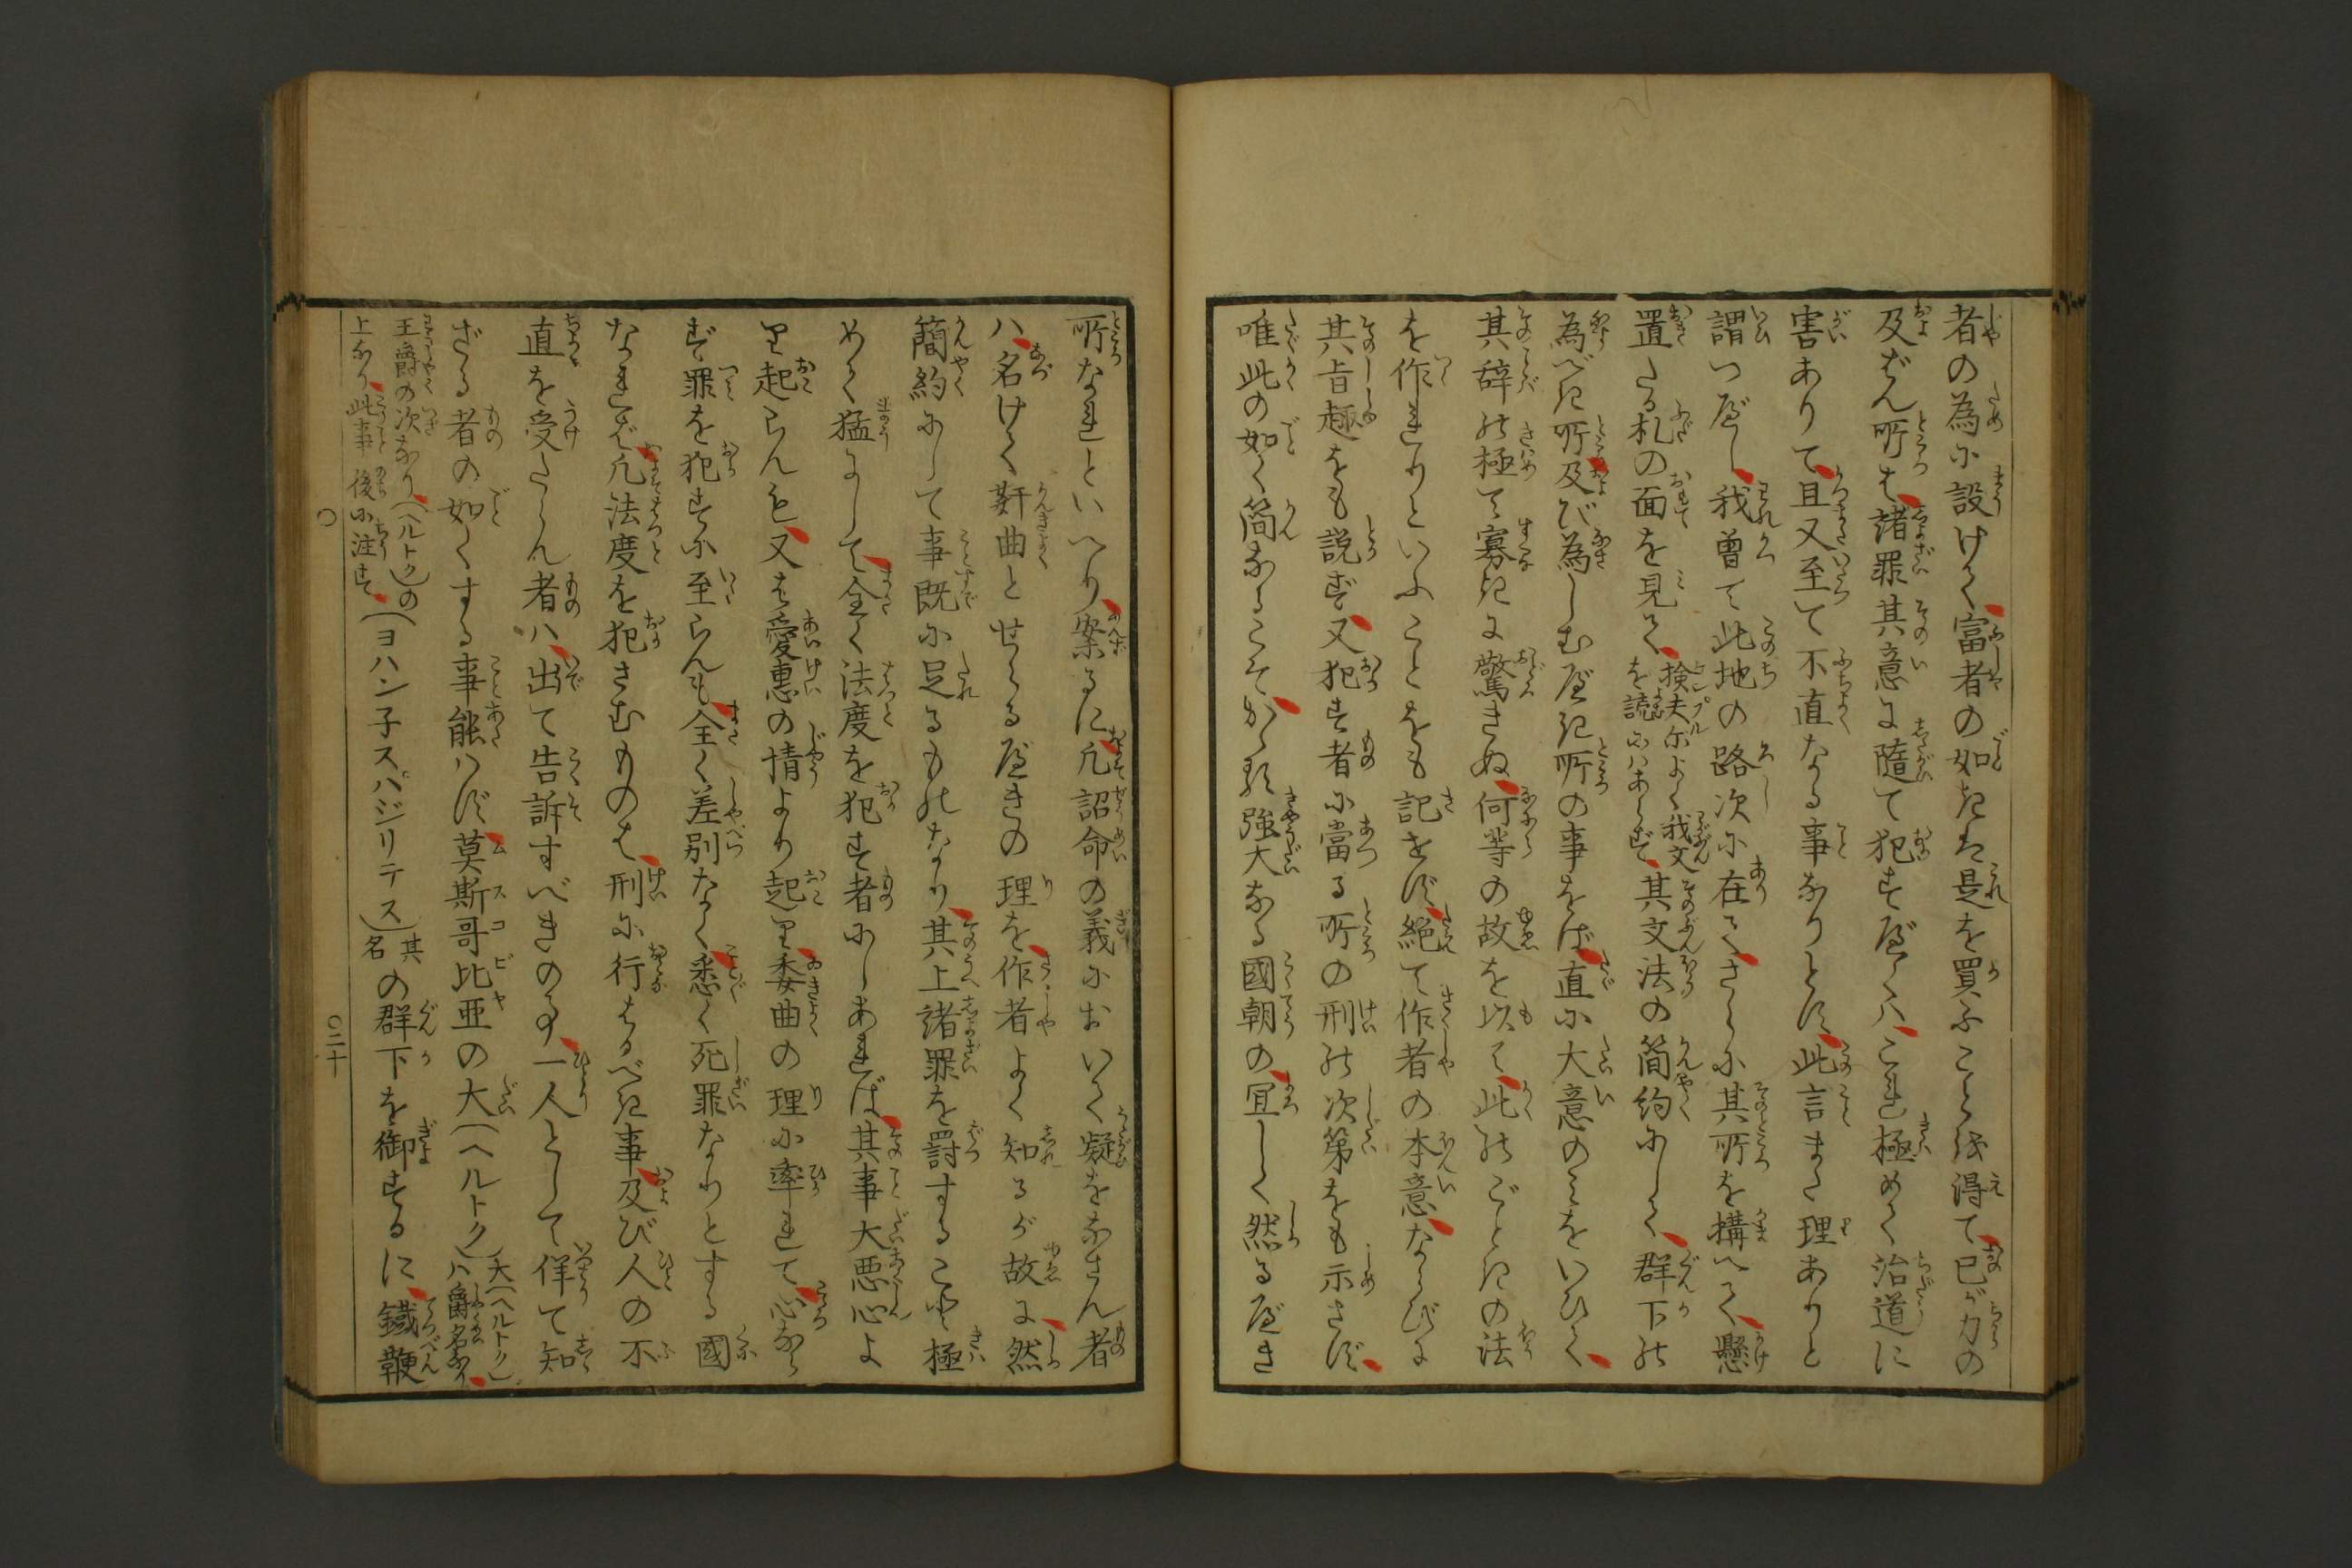 者の為に設けく富者の如きは是を買ふことを得て已が力の
及ばん所は諸罪其意に随て犯すべくハこれ極めく治道に
害ありて且又至て不直なる事なりとぞ此言また理ありと
謂つべし我曾て此地の路次に在てさらに其所を構へて懸
置たる札の面を見て
検夫尓よく我文
を読にハあらず
其文法の簡約にしく群下の
為べき所及び為しむべき所の事をば直に大意のミをいひく
其辞の極て寡きに驚きぬ何等の故を以て此のごときの法
を作れりといふことをも記せず絶て作者の本意ならびに
其旨趣をも説ず又犯す者に當る所の刑の次第をも示さず
唯此の如く簡なるこそかく強大なる國朝の宜しく然るべき
所なれといへり案るに凡詔命の義においく疑をなさん者
ハ名けく姧曲とせらるべきの理を作者よく知るが故に然
簡約にして事既に足るものなり其上諸罪を罰すること極
めく猛にして全く法度を犯す者にしあれば其事大悪心よ
り起らんも又は愛惠の情より起り委曲の理に牽れて心なら
ず罪を犯すに至らんも全く差別なく悉く死罪なりとする國
なれば凡法度を犯さむものは刑に行はるべき事及び人の不
直を受たらん者ハ出て告訴すべきの事一人として佯て知
ざる者の如くする事能はず莫斯哥比亜の大(ヘルトク)
大(ヘルトク)
ハ爵名なり
王爵の次なり(ヘルトク)の
上なり此事後に注す
(ヨハン子スバジリテス)
其
名
の群下を御するに鐵鞭
〇二十